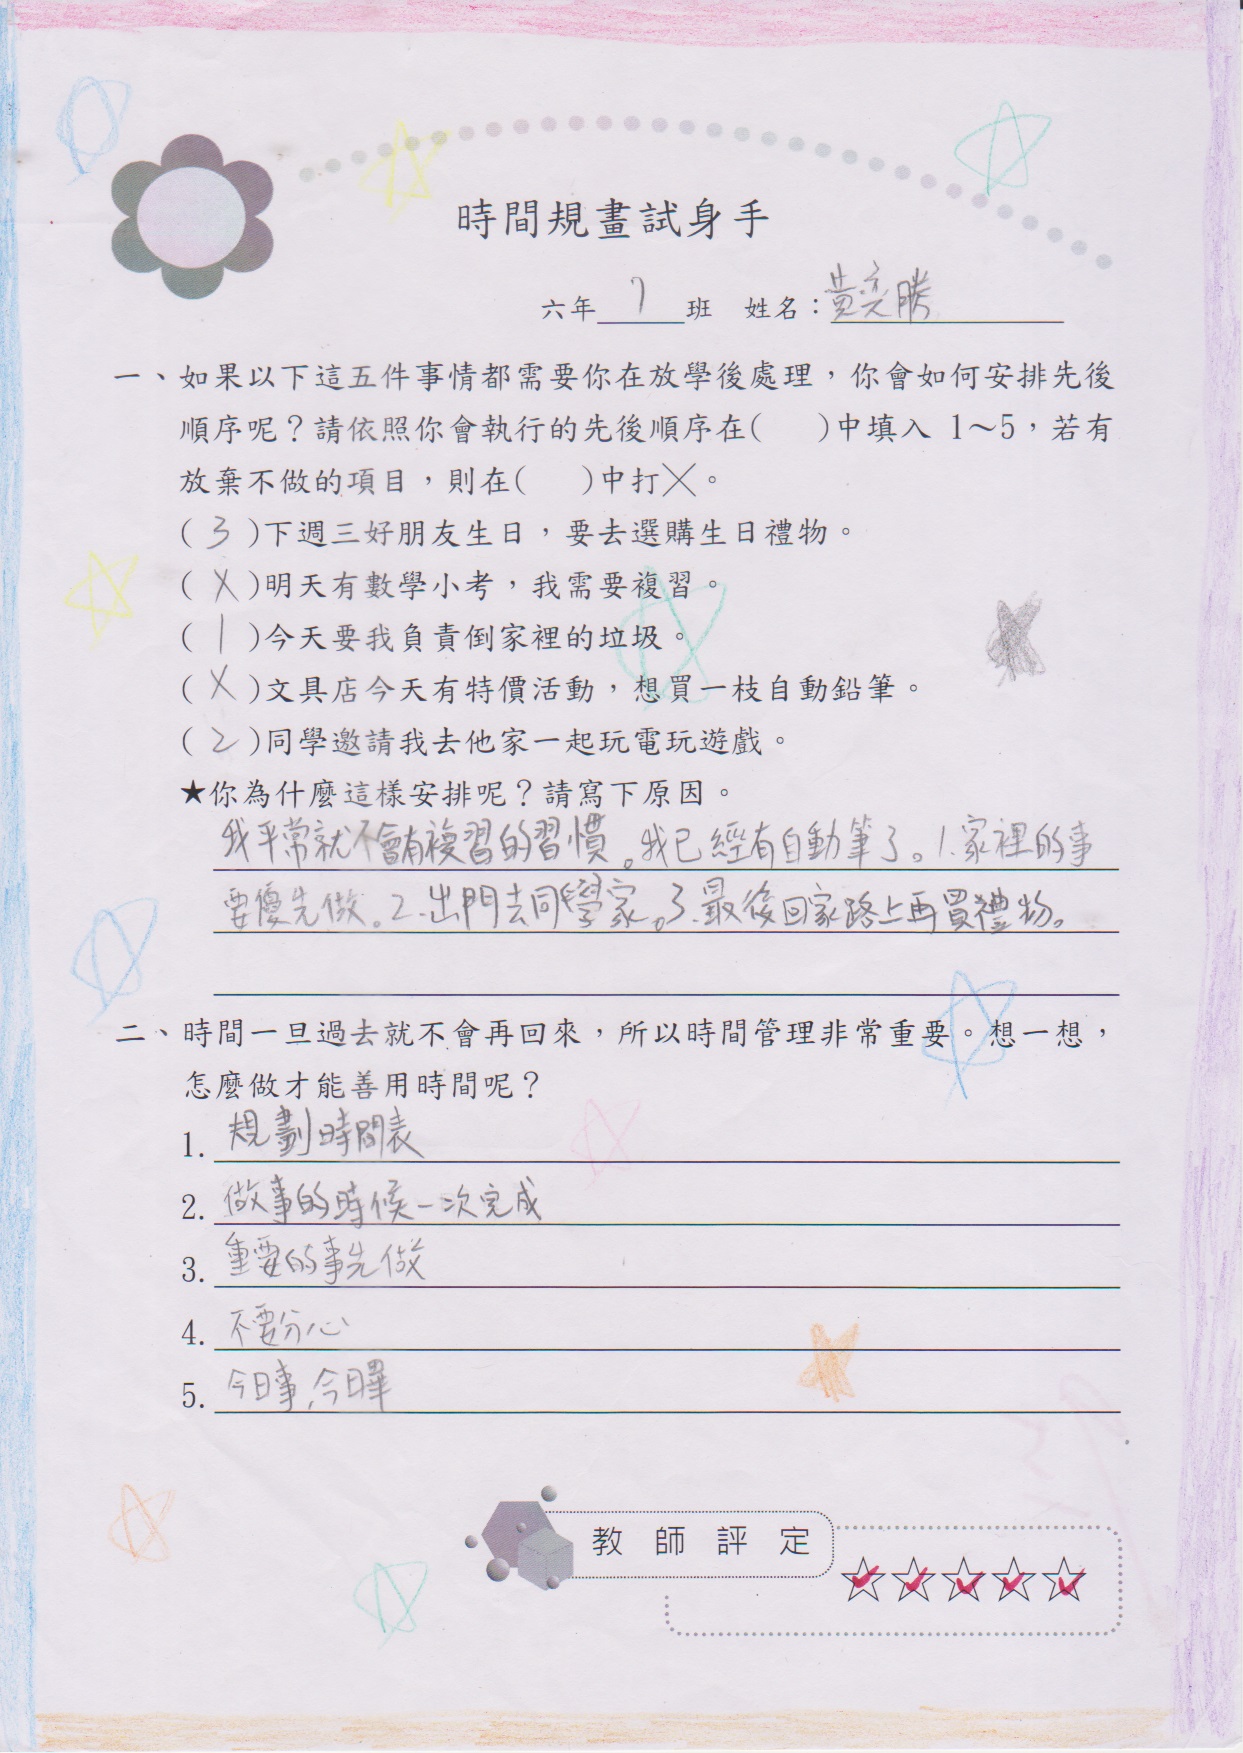 時間規畫試身手
六年 7 班 姓名：黃奕勝
一、如果以下這五件事情都需要你在放學後處理，你會如何安排先後
順序呢？請依照你會執行的先後順序在( )中填入 1～5，若有
放棄不做的項目，則在( )中打╳。
( 3 )下週三好朋友生日，要去選購生日禮物。
( X )明天有數學小考，我需要複習。
( 1 )今天要我負責倒家裡的垃圾。
( X )文具店今天有特價活動，想買一枝自動鉛筆。
( 2 )同學邀請我去他家一起玩電玩遊戲。
★你為什麼這樣安排呢？請寫下原因。
我平常就不會有複習的習慣。我已經有自動筆了。1.家裡的事
要優先做。2.出門去同學家。3.最後回家路上再買禮物。
二、時間一旦過去就不會再回來，所以時間管理非常重要。想一想，
怎麼做才能善用時間呢？
1. 規劃時間表
2. 做事的時候一次完成
3. 重要的事先做
4. 不要分心
5. 今日事,今日畢
教師評定